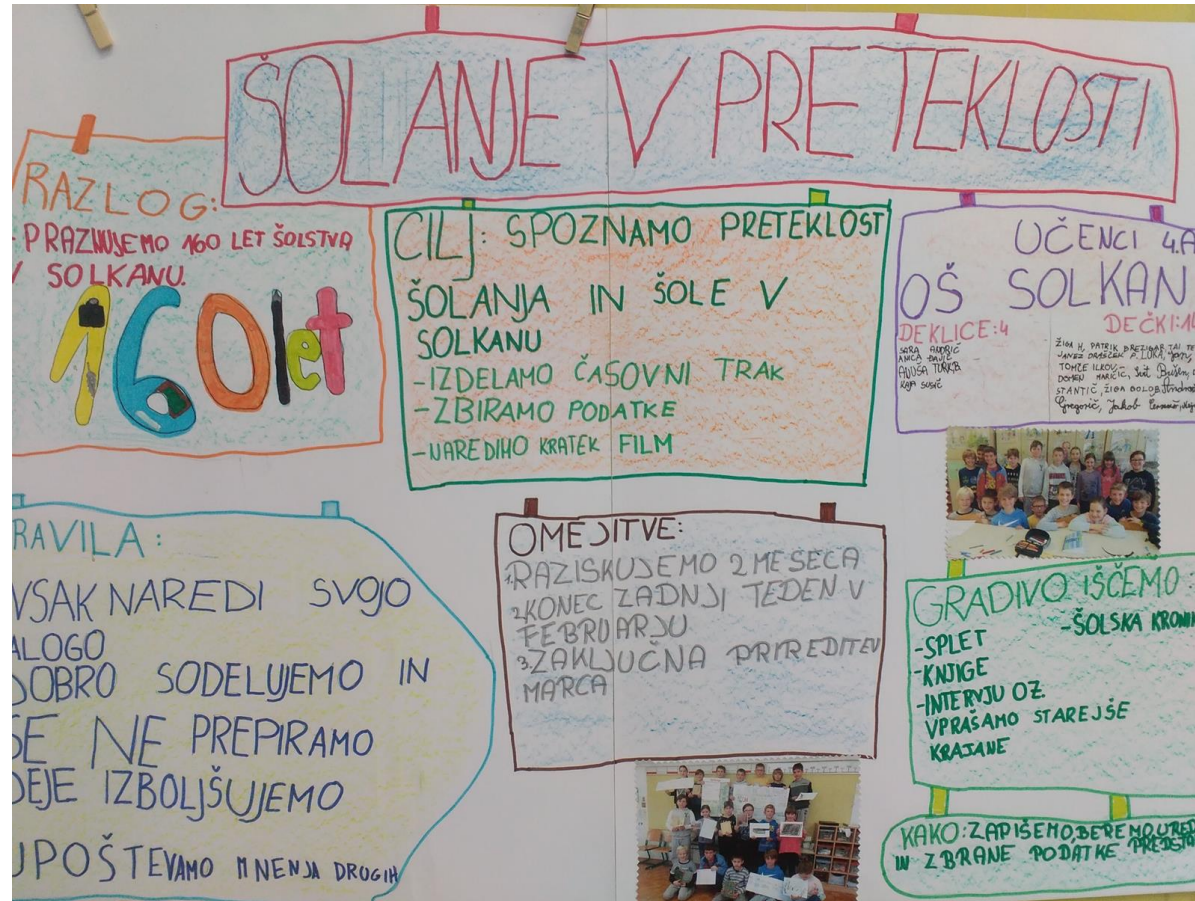 ŠOLANJE V PRETEKLOSTI
RAZLOG:
- PRAZNUJEMO 160 LET ŠOLSTVA
V SOLKANU.
160let
CILJ: SPOZNAMO PRETEKLOST
ŠOLANJA IN ŠOLE V
SOLKANU
-IZDELAMO ČASOVNI TRAK
-ZBIRAMO PODATKE
-NAREDIMO KRATEK FILM
UČENCI 4.A
OŠ SOLKAN
DEKLICE:4
SARA ANDRIĆ
ANICA
KAJA SUŠIĆ
DEČKI:
ŽIGA H, PATRIK BREZIGAR, TAI
JANEZ DRAŠČEK P. LUKA,
TOMŽE ILKOV,
DOMEN MARIČIČ,
STANTIČ, ŽIGA
Gregorič, Jakob
RAVILA:
VSAK NAREDI SVOJO
ALOGO
DOBRO SODELUJEMO IN
SE NE PREPIRAMO
DEJE IZBOLJŠUJEMO
UPOŠTEVAMO MNENJA DRUGIH
OMEJITVE:
1.RAZISKUJEMO 2 MESECA
2.KONEC ZADNJI TEDEN V
FEBRUARJU
3.ZAKLJUČNA PRIREDITEV
MARCA
GRADIVO IŠČEMO:
-SPLET
-ŠOLSKA KRONI
-KNJIGE
-INTERVJU OZ.
VPRAŠAMO STAREJŠE
KRAJANE
KAKO: ZAPIŠEMO, BEREMO, URED
IN ZBRANE PODATKE PREDSTA